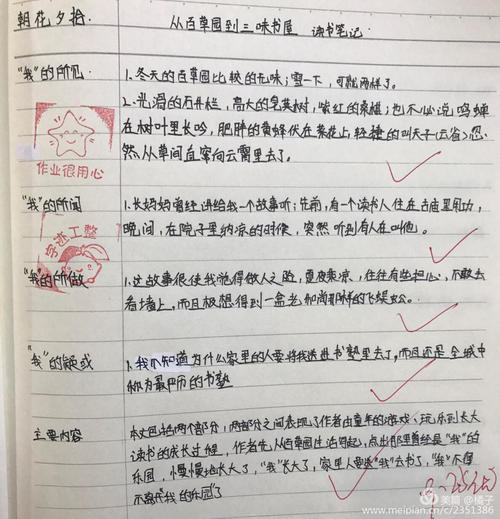 朝花夕拾
从百草园到三味书屋 读书笔记
"我"的所见
1.冬天的百草园比较的无味;雪一下,可就两样了。
2.光滑的石井栏,高大的皂荚树,紫红的桑椹;也不必说鸣蝉
在树叶里长吟,肥胖的黄蜂伏在菜花上,轻捷的叫天子(云雀)忽
然从草间直窜向云霄里去了。
作业很用心
"我"的所闻
1.长妈妈曾经讲给我一个故事听;先前,有一个读书人住在古庙里用功,
晚间,在院子里纳凉的时候,突然听到有人在叫他。
字迹工整
"我"的所做
1.这故事很使我觉得做人之险,夏夜乘凉,往往有些担心,不敢去
看墙上,而且极想得到一盒老和尚那样的飞蜈蚣。
"我"的疑惑
1.我不知道为什么家里的人要将我送进书塾里去了,而且还是全城中
称为最严厉的书塾
主要内容
本文包括两个部分,两部分之间表现了作者由童年的游戏、玩乐到长大
读书的成长过程,作者先从百草园过活写起,点出那里曾经是"我"的
乐园,慢慢地长大了,"我"长大了,家里人要送"我"去书了,"我"不得
不离我的乐园了
美篇 @橘子
www.meipian.cn/c/2351386